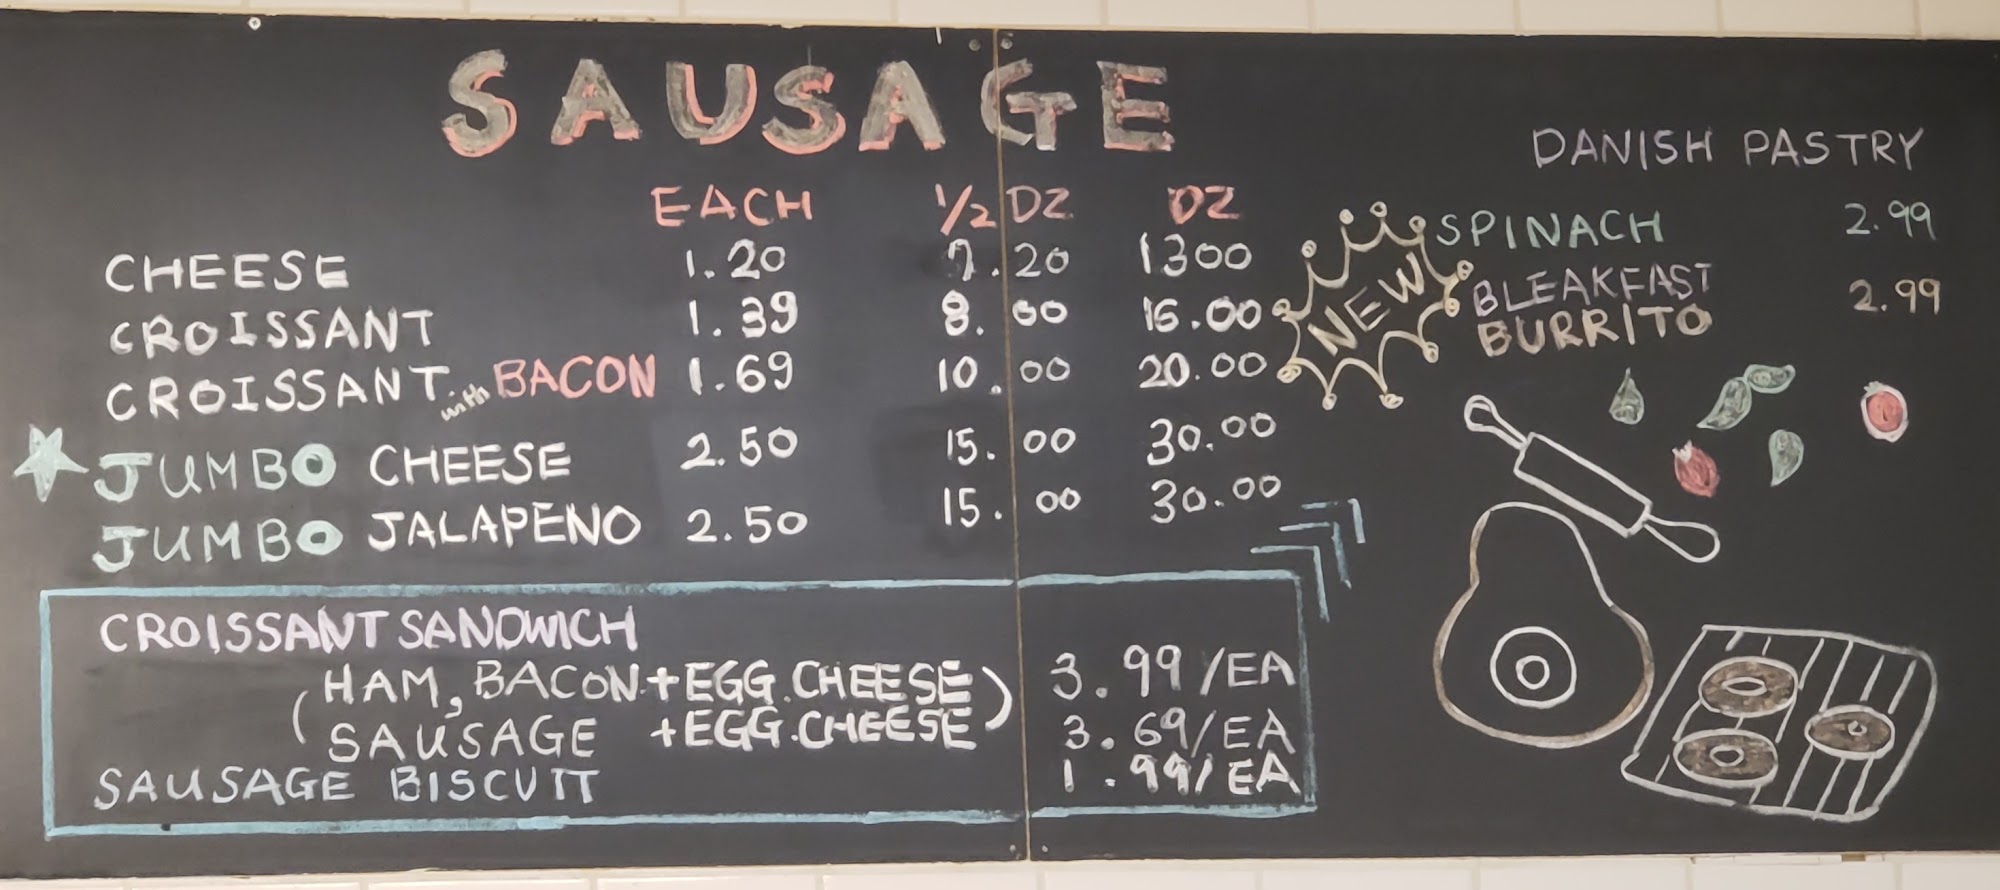 SAUSAGE
EACH 1/2 DZ DZ
CHEESE 1.20 7.20 1300
CROISSANT 1.39 8.00 16.00
CROISSANT with BACON 1.69 10.00 20.00
JUMBO CHEESE 2.50 15.00 30.00
JUMBO JALAPENO 2.50 15.00 30.00
CROISSANT SANDWICH
(HAM, BACON + EGG.CHEESE) 3.99/EA
SAUSAGE + EGG.CHEESE 3.69/EA
SAUSAGE BISCUIT 1.99/EA
DANISH PASTRY
SPINACH 2.99
NEW
BLEAKFAST 2.99
BURRITO